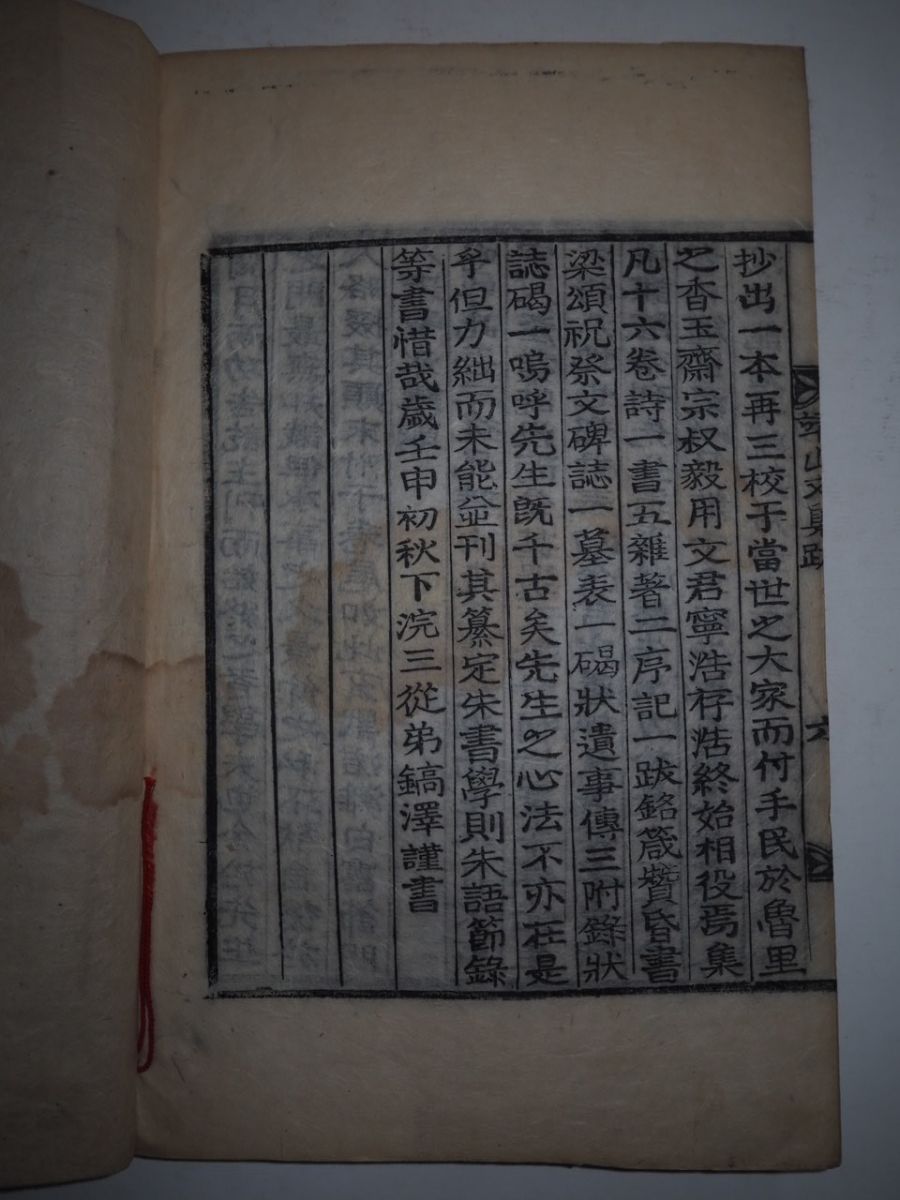 抄出一本再三校于當世之大家而付手民於魯里
之杳玉齋宗叔毅用文君寧浩存浩終始相役焉集
凡十六卷詩一書五雜著二序記一跋銘箴贊昏書
梁頌祝祭文碑誌一墓表一碣狀遺事傳三附錄狀
誌碣一嗚呼先生旣千古矣先生之心法不亦在是
乎但力絀而未能並刊其纂定朱書學則朱語節錄
等書惜哉歲壬申初秋下浣三從弟鎬澤謹書
山文集跋
六